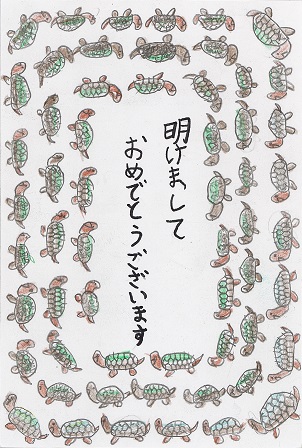 明けまして
おめでとうございます